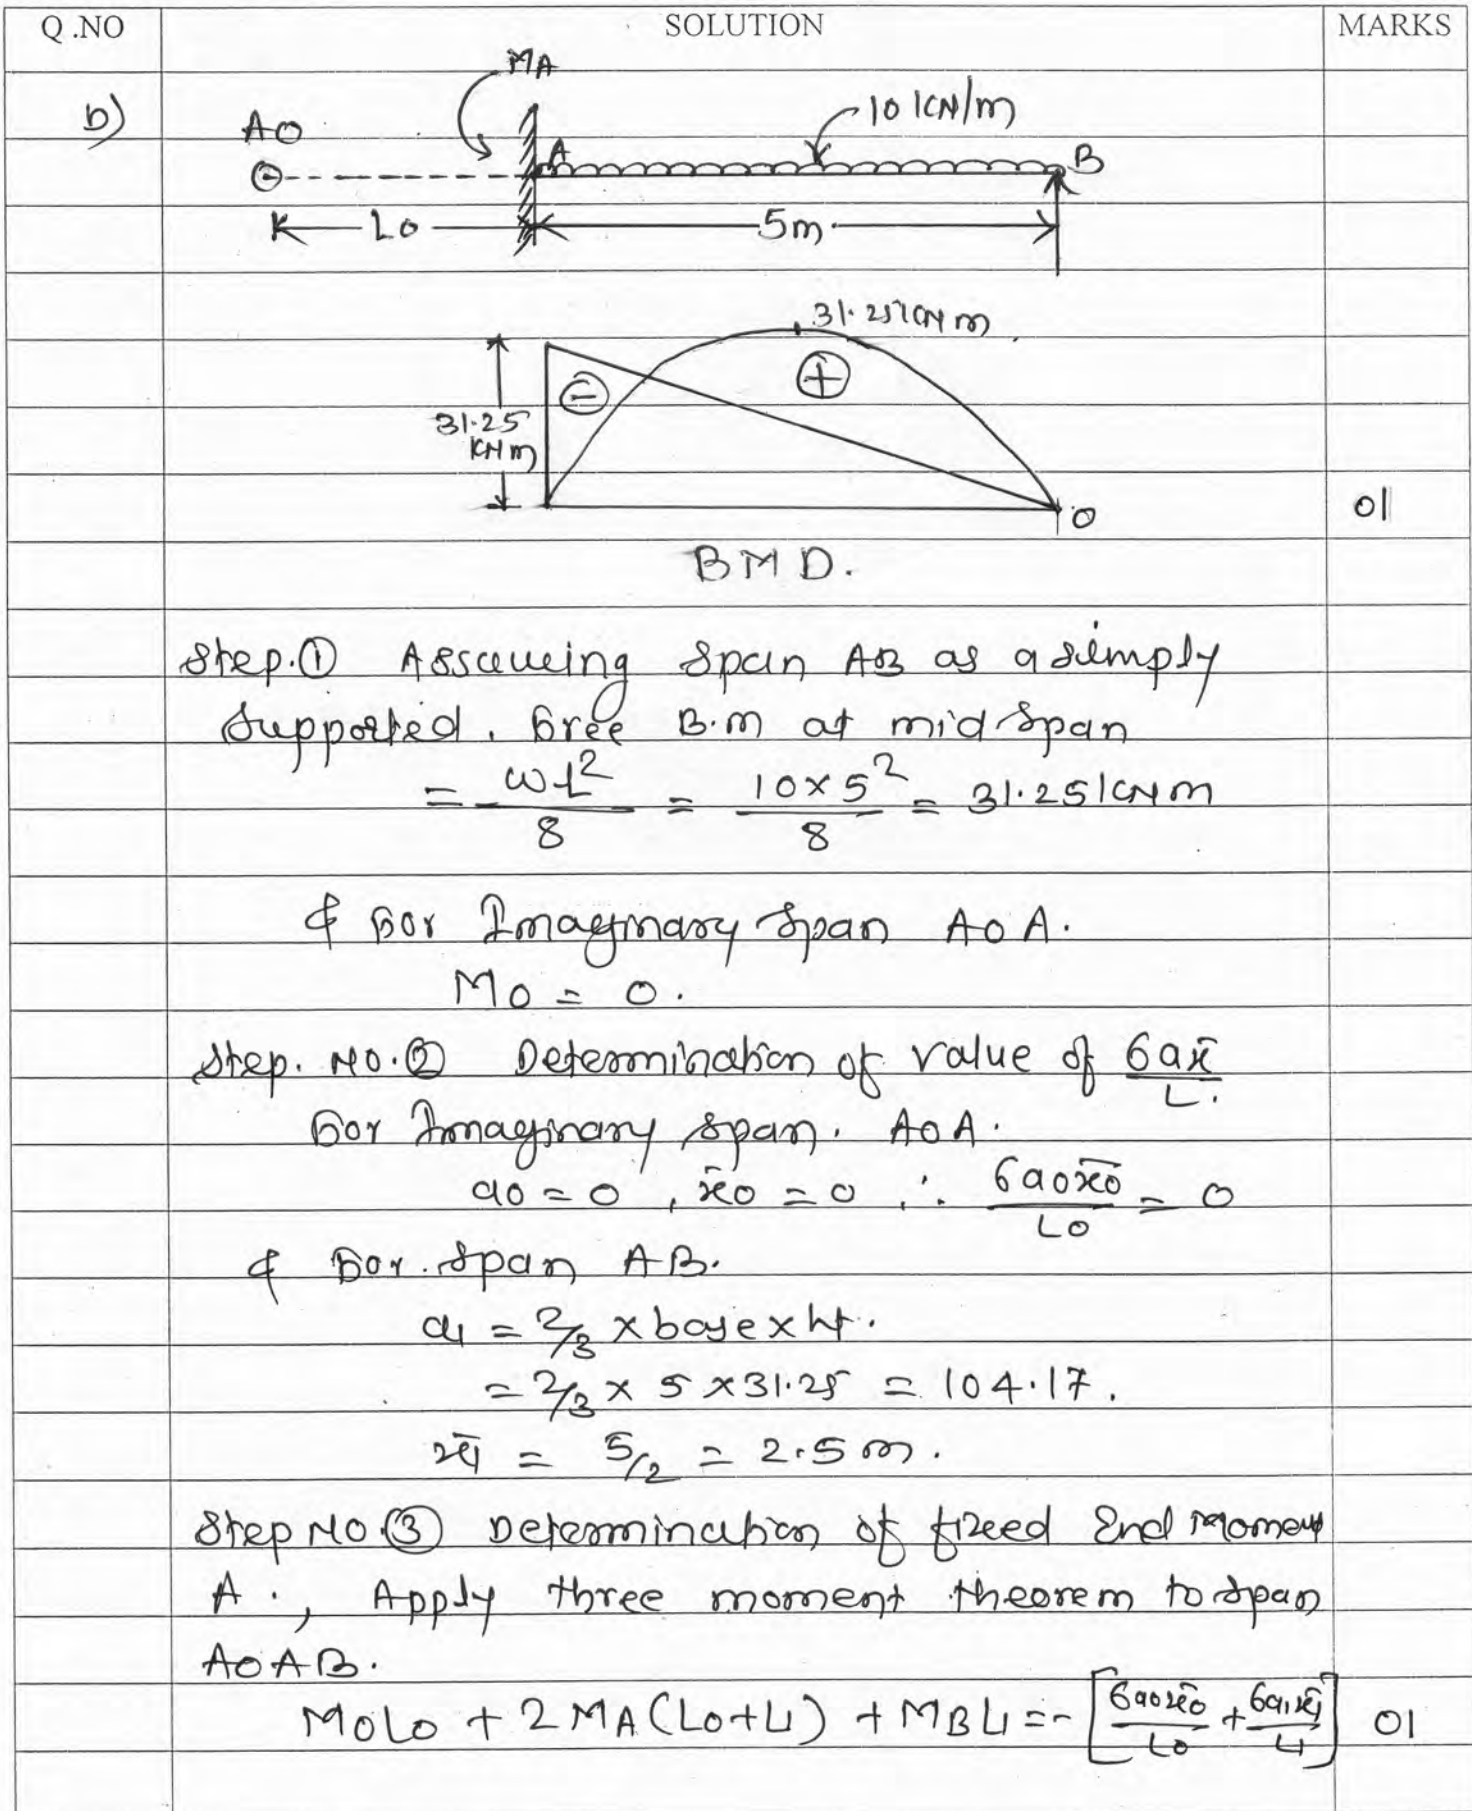 Q.NO SOLUTION MARKS
MA
b) AO A 10 KN/m B
L0 5m
31.25 KN m
⊖ ⊕
31.25
KN m
0 01
BMD.
Step.① Assuming span AB as a simply
supported. free B.M at mid span
= ωL²/8 = 10×5²/8 = 31.25 KN m
& for Imaginary span AOA.
M0 = 0.
Step. NO.② Determination of value of 6ax̄/L.
for Imaginary span. AOA.
a0 = 0, x̄0 = 0 ∴ 6a0x̄0/L0 = 0
& for span AB.
a1 = 2/3 × base × ht.
= 2/3 × 5 × 31.25 = 104.17.
x̄1 = 5/2 = 2.5 m.
Step NO.③ Determination of fixed End Moment
A., Apply three moment theorem to span
AOAB.
M0L0 + 2MA(L0+L1) + MBL1 = -[6a0x̄0/L0 + 6a1x̄1/L1] 01